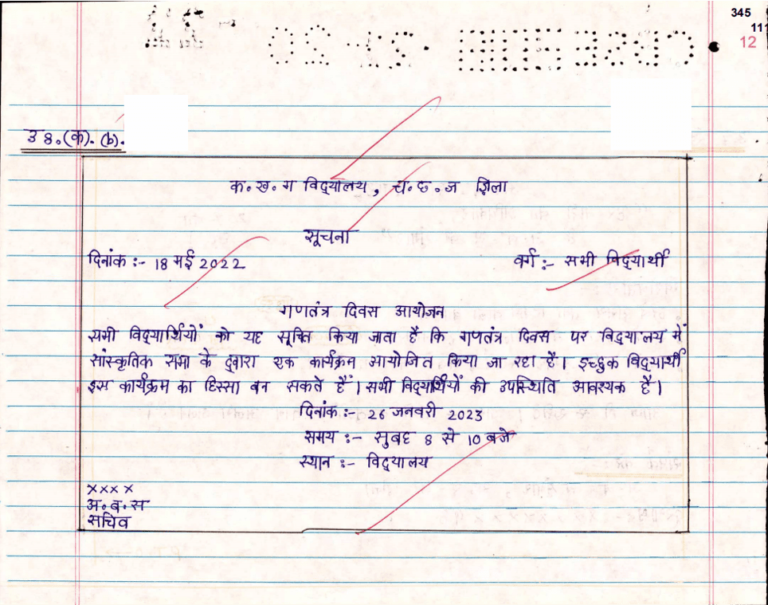 345
111
12
उ 8.(क).(b).
क.ख.ग विद्यालय, च.छ.ज ज़िला
सूचना
दिनांक :- 18 मई 2022 वर्ग :- सभी विद्यार्थी
गणतंत्र दिवस आयोजन
सभी विद्यार्थियों को यह सूचित किया जाता है कि गणतंत्र दिवस पर विद्यालय में
सांस्कृतिक सभा के द्वारा एक कार्यक्रम आयोजित किया जा रहा है। इच्छुक विद्यार्थी
इस कार्यक्रम का हिस्सा बन सकते हैं। सभी विद्यार्थियों की उपस्थिति आवश्यक है।
दिनांक :- 26 जनवरी 2023
समय :- सुबह 8 से 10 बजे
स्थान :- विद्यालय
××××
अ.ब.स
सचिव